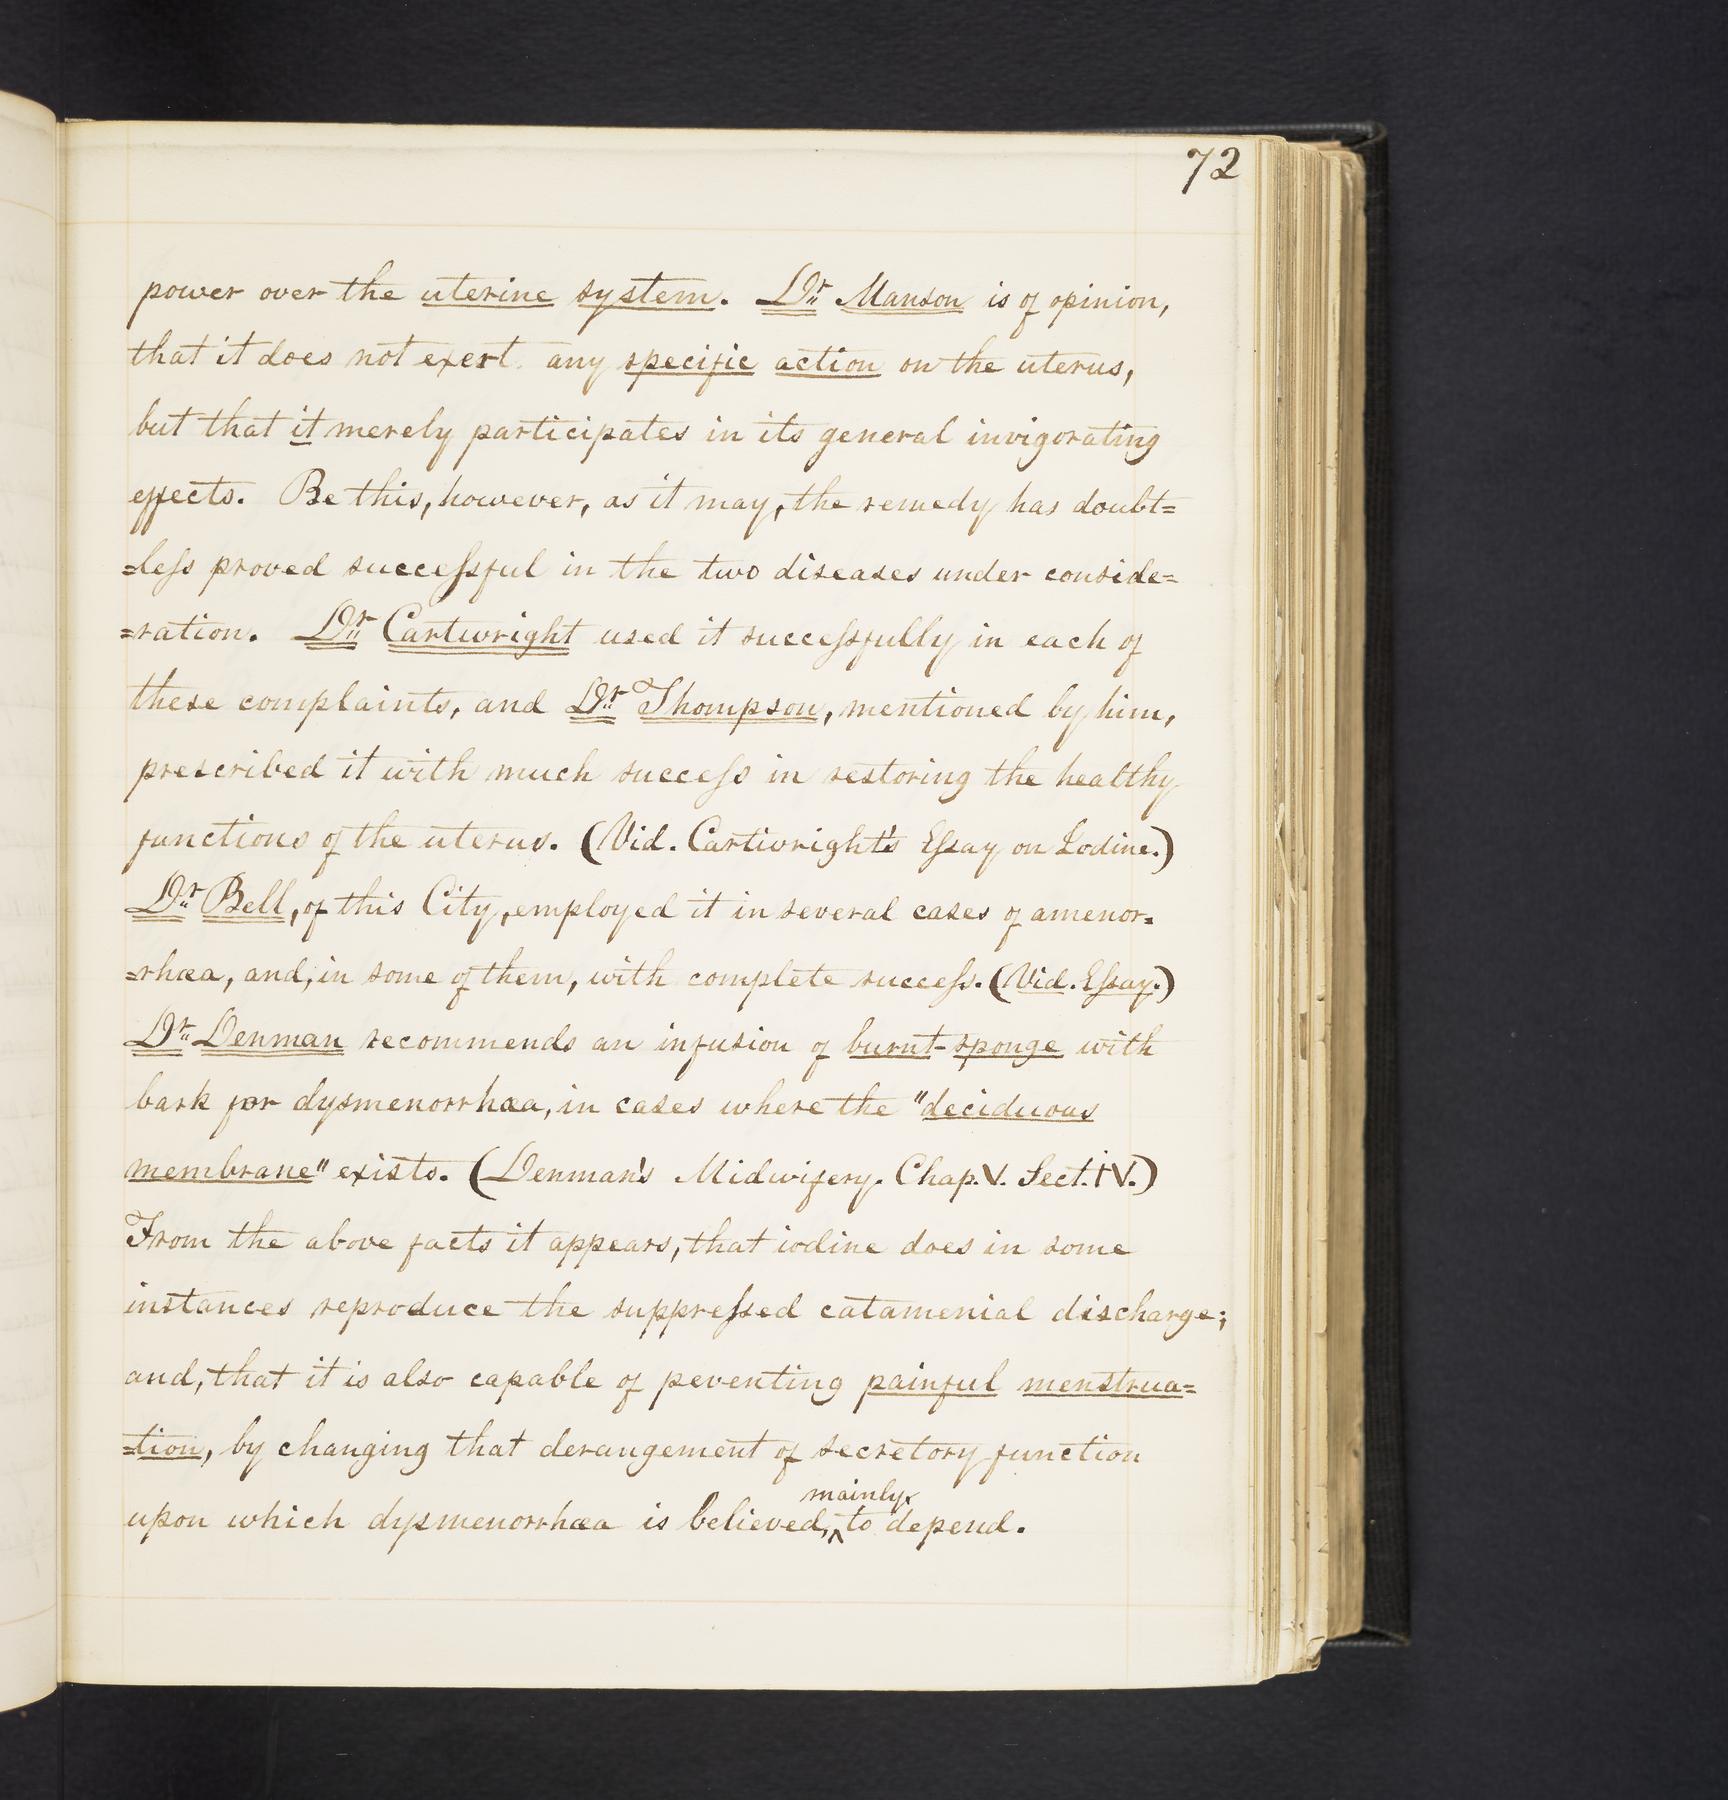 72
power over the uterine system. Dr Manson is of opinion,
that it does not exert any specific action on the uterus,
but that it merely participates in its general invigorating
effects. Be this, however, as it may, the remedy has doubt=
=leſs proved succeſsful in the two diseases under conside=
=ration. Dr Cartwright used it succeſsfully in each of
these complaints, and Dr Thompson, mentioned by him,
prescribed it with much succeſs in restoring the healthy
functions of the uterus. (Vid. Cartwright's Eſsay on Iodine.)
Dr Bell, of this City, employed it in several cases of amenor=
=rhœa, and, in some of them, with complete succeſs. (Vid. Eſsay.)
Dr Denman recommends an infusion of burnt-sponge with
bark for dysmenorrhœa, in cases where the "deciduous
membrane" exists. (Denman's Midwifery. Chap. V. Sect. IV.)
From the above facts it appears, that iodine does in some
instances reproduce the suppreſsed catamenial discharge;
and, that it is also capable of peventing painful menstrua=
=tion, by changing that derangement of secretory function
mainly
upon which dysmenorrhœa is believed, to depend.